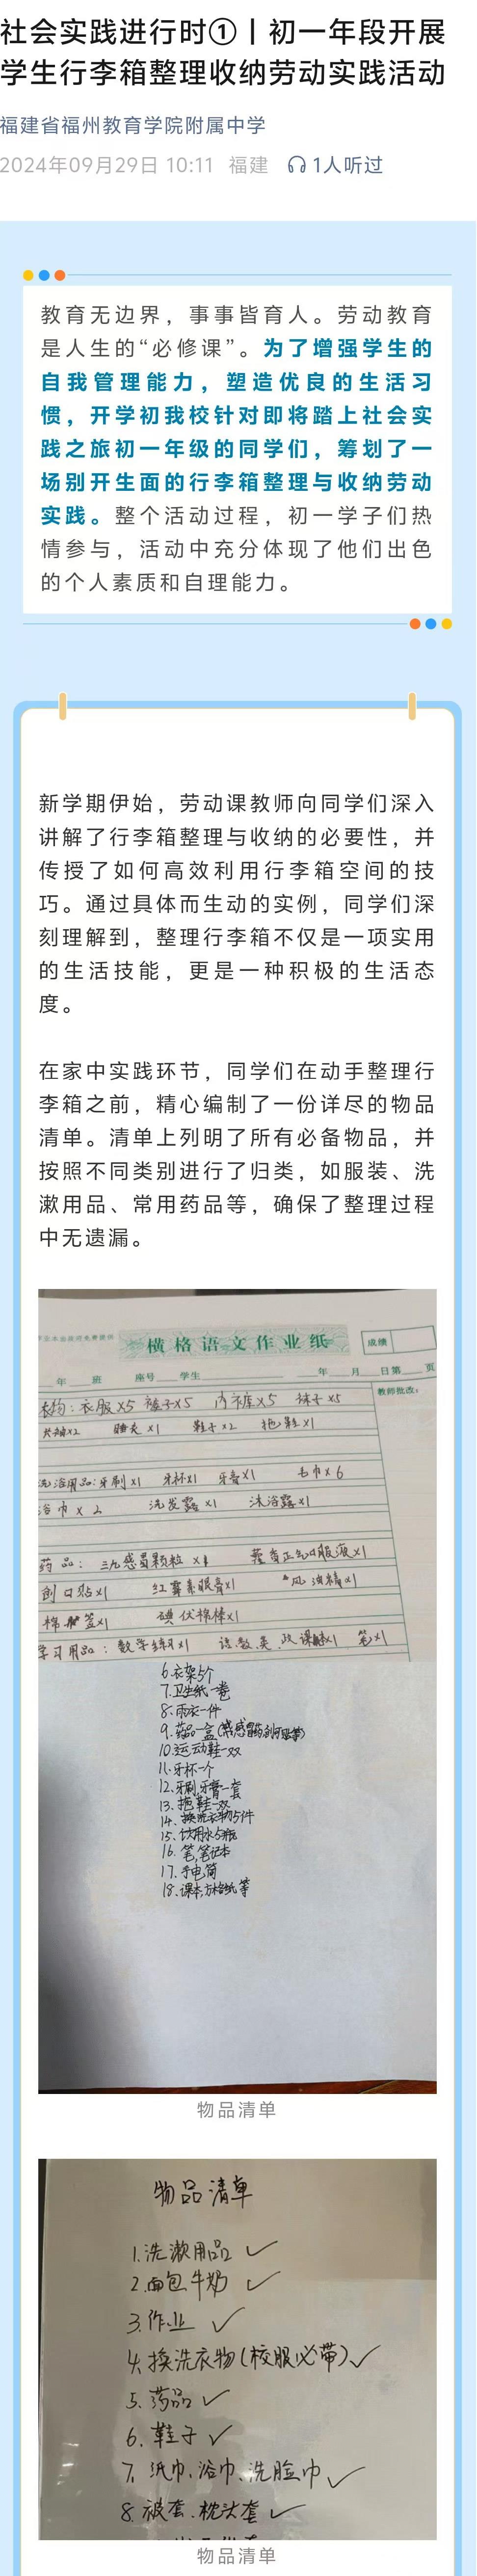 社会实践进行时①丨初一年段开展
学生行李箱整理收纳劳动实践活动
福建省福州教育学院附属中学
2024年09月29日 10:11 福建 1人听过
教育无边界，事事皆育人。劳动教育
是人生的“必修课”。为了增强学生的
自我管理能力，塑造优良的生活习
惯，开学初我校针对即将踏上社会实
践之旅初一年级的同学们，筹划了一
场别开生面的行李箱整理与收纳劳动
实践。整个活动过程，初一学子们热
情参与，活动中充分体现了他们出色
的个人素质和自理能力。
新学期伊始，劳动课教师向同学们深入
讲解了行李箱整理与收纳的必要性，并
传授了如何高效利用行李箱空间的技
巧。通过具体而生动的实例，同学们深
刻理解到，整理行李箱不仅是一项实用
的生活技能，更是一种积极的生活态
度。
在家中实践环节，同学们在动手整理行
李箱之前，精心编制了一份详尽的物品
清单。清单上列明了所有必备物品，并
按照不同类别进行了归类，如服装、洗
漱用品、常用药品等，确保了整理过程
中无遗漏。
横格语文作业纸
成绩
年 班 座号 学生 年 月 日第 页
教师批改：
衣物：衣服×5 裤子×5 内裤×5 袜子×5
睡衣×1 鞋子×2 拖鞋×1
洗浴用品：牙刷×1 牙杯×1 牙膏×1 毛巾×6
浴巾×2 洗发露×1 沐浴露×1
药品：三九感冒颗粒×1 藿香正气口服液×1
创口贴×1 红霉素眼膏×1 风油精×1
棉签×1 碘伏棉棒×1
学习用品：数学练习×1 语数英政课本×1 笔×1
6.衣架5个
7.卫生纸一卷
8.雨衣一件
9.药品一盒
10.运动鞋一双
11.牙杯一个
12.牙刷,牙膏一套
13.拖鞋一双
14.换洗衣物5件
15.饮用水5瓶
16.笔,笔记本
17.手电筒
18.课本,方格纸等
物品清单
物品清单
1.洗漱用品
2.面包牛奶
3.作业
4.换洗衣物(校服必带)
5.药品
6.鞋子
7.纸巾、浴巾、洗脸巾
8.被套、枕头套
物品清单